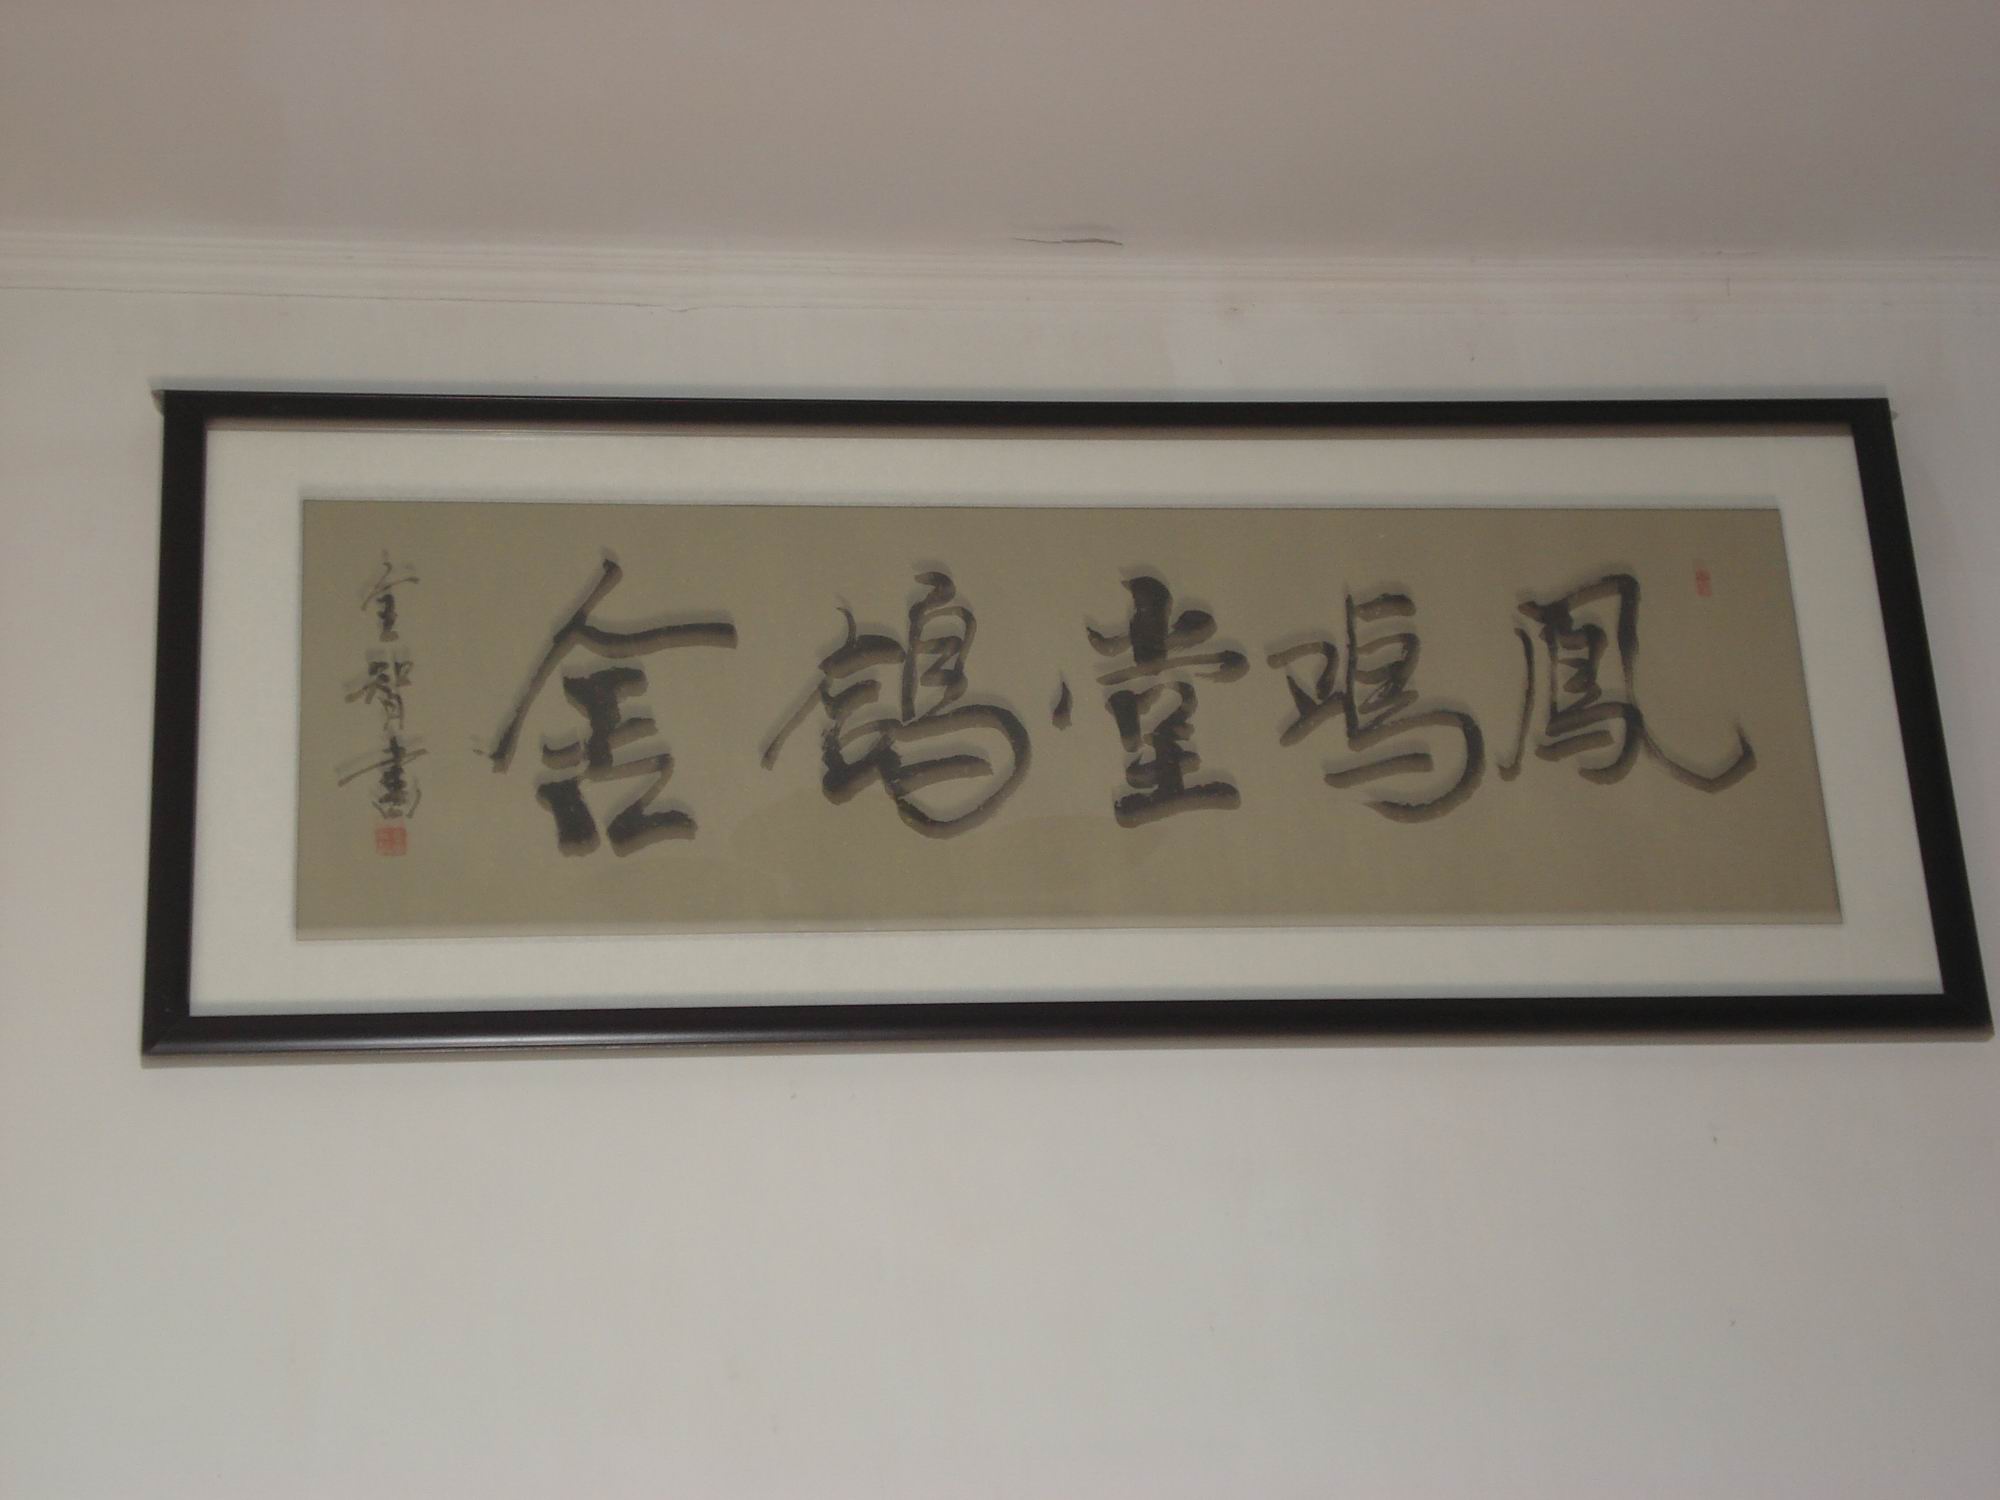 鳳鳴堂鴿舍
金智書